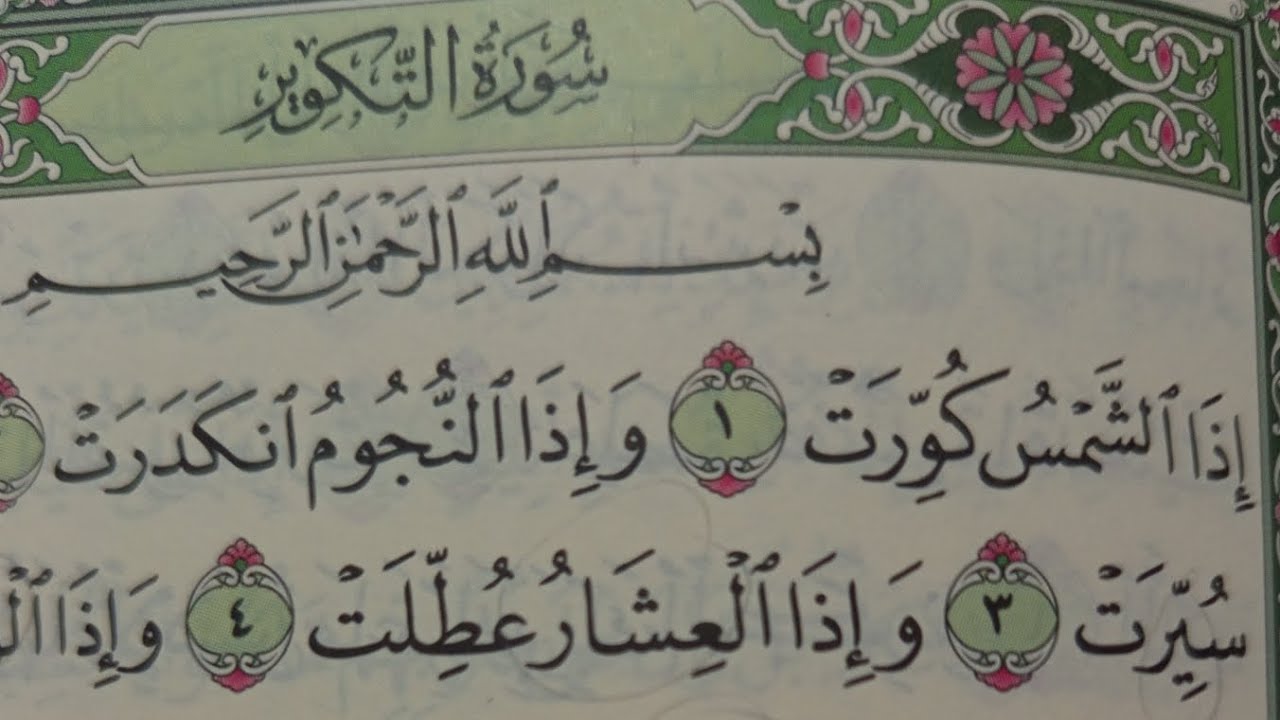 سُورَةُ التَّكْوِيرِ
بِسْمِ ٱللَّهِ ٱلرَّحْمَٰنِ ٱلرَّحِيمِ
إِذَا ٱلشَّمْسُ كُوِّرَتْ ١ وَإِذَا ٱلنُّجُومُ ٱنكَدَرَتْ
سُيِّرَتْ ٣ وَإِذَا ٱلْعِشَارُ عُطِّلَتْ ٤ وَإِذَا